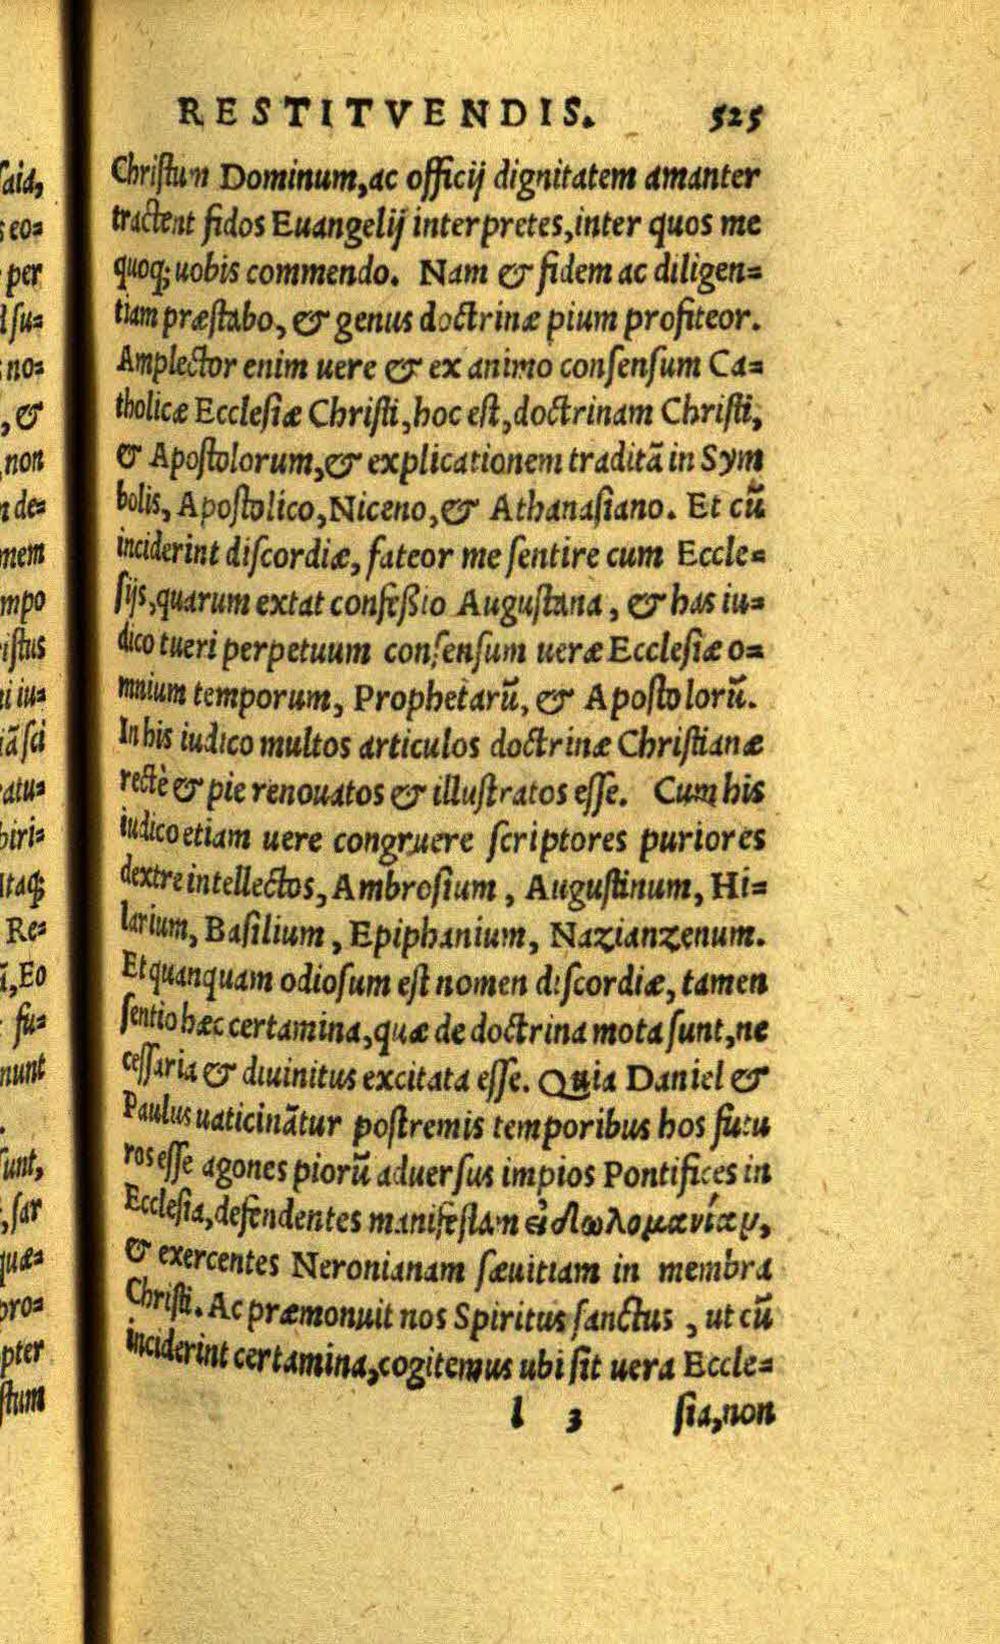 RESTITVENDIS. 525
Christum Dominum, ac officij dignitatem amanter
tractent fidos Euangelij interpretes, inter quos me
quoq; uobis commendo. Nam & fidem ac diligen=
tiam præstabo, & genus doctrinæ pium profiteor.
Amplector enim uere & ex animo consensum Ca=
tholicæ Ecclesiæ Christi, hoc est, doctrinam Christi,
& Apostolorum, & explicationem traditã in Sym
bolis, Apostolico, Niceno, & Athanasiano. Et cũ
inciderint discordiæ, fateor me sentire cum Eccle=
sijs, quarum extat confeßio Augustana, & has iu=
dico tueri perpetuum consensum ueræ Ecclesiæ o=
mnium temporum, Prophetarũ, & Apostolorũ.
In his iudico multos articulos doctrinæ Christianæ
rectè & pie renouatos & illustratos esse. Cum his
iudico etiam uere congruere scriptores puriores
dextre intellectos, Ambrosium, Augustinum, Hi=
larium, Basilium, Epiphanium, Nazianzenum.
Et quanquam odiosum est nomen discordiæ, tamen
sentio hæc certamina, quæ de doctrina mota sunt, ne
cessaria & diuinitus excitata esse. Quia Daniel &
Paulus uaticinãtur postremis temporibus hos futu
ros esse agones piorũ aduersus impios Pontifices in
Ecclesia, defendentes manifestam εἰδωλομανίαν,
& exercentes Neronianam sæuitiam in membra
Christi. Ac præmonuit nos Spiritus sanctus, ut cũ
inciderint certamina, cogitemus ubi sit uera Eccle=
l 3 sia, non
saia,
eo=
per
su=
no=
, &
non
de=
mem
mpo
istus
iu=
sci
atu=
hiri=
itaq;
Re=
, Eo
fu=
nunt
sunt,
, sar
quæ=
pro=
pter
stum